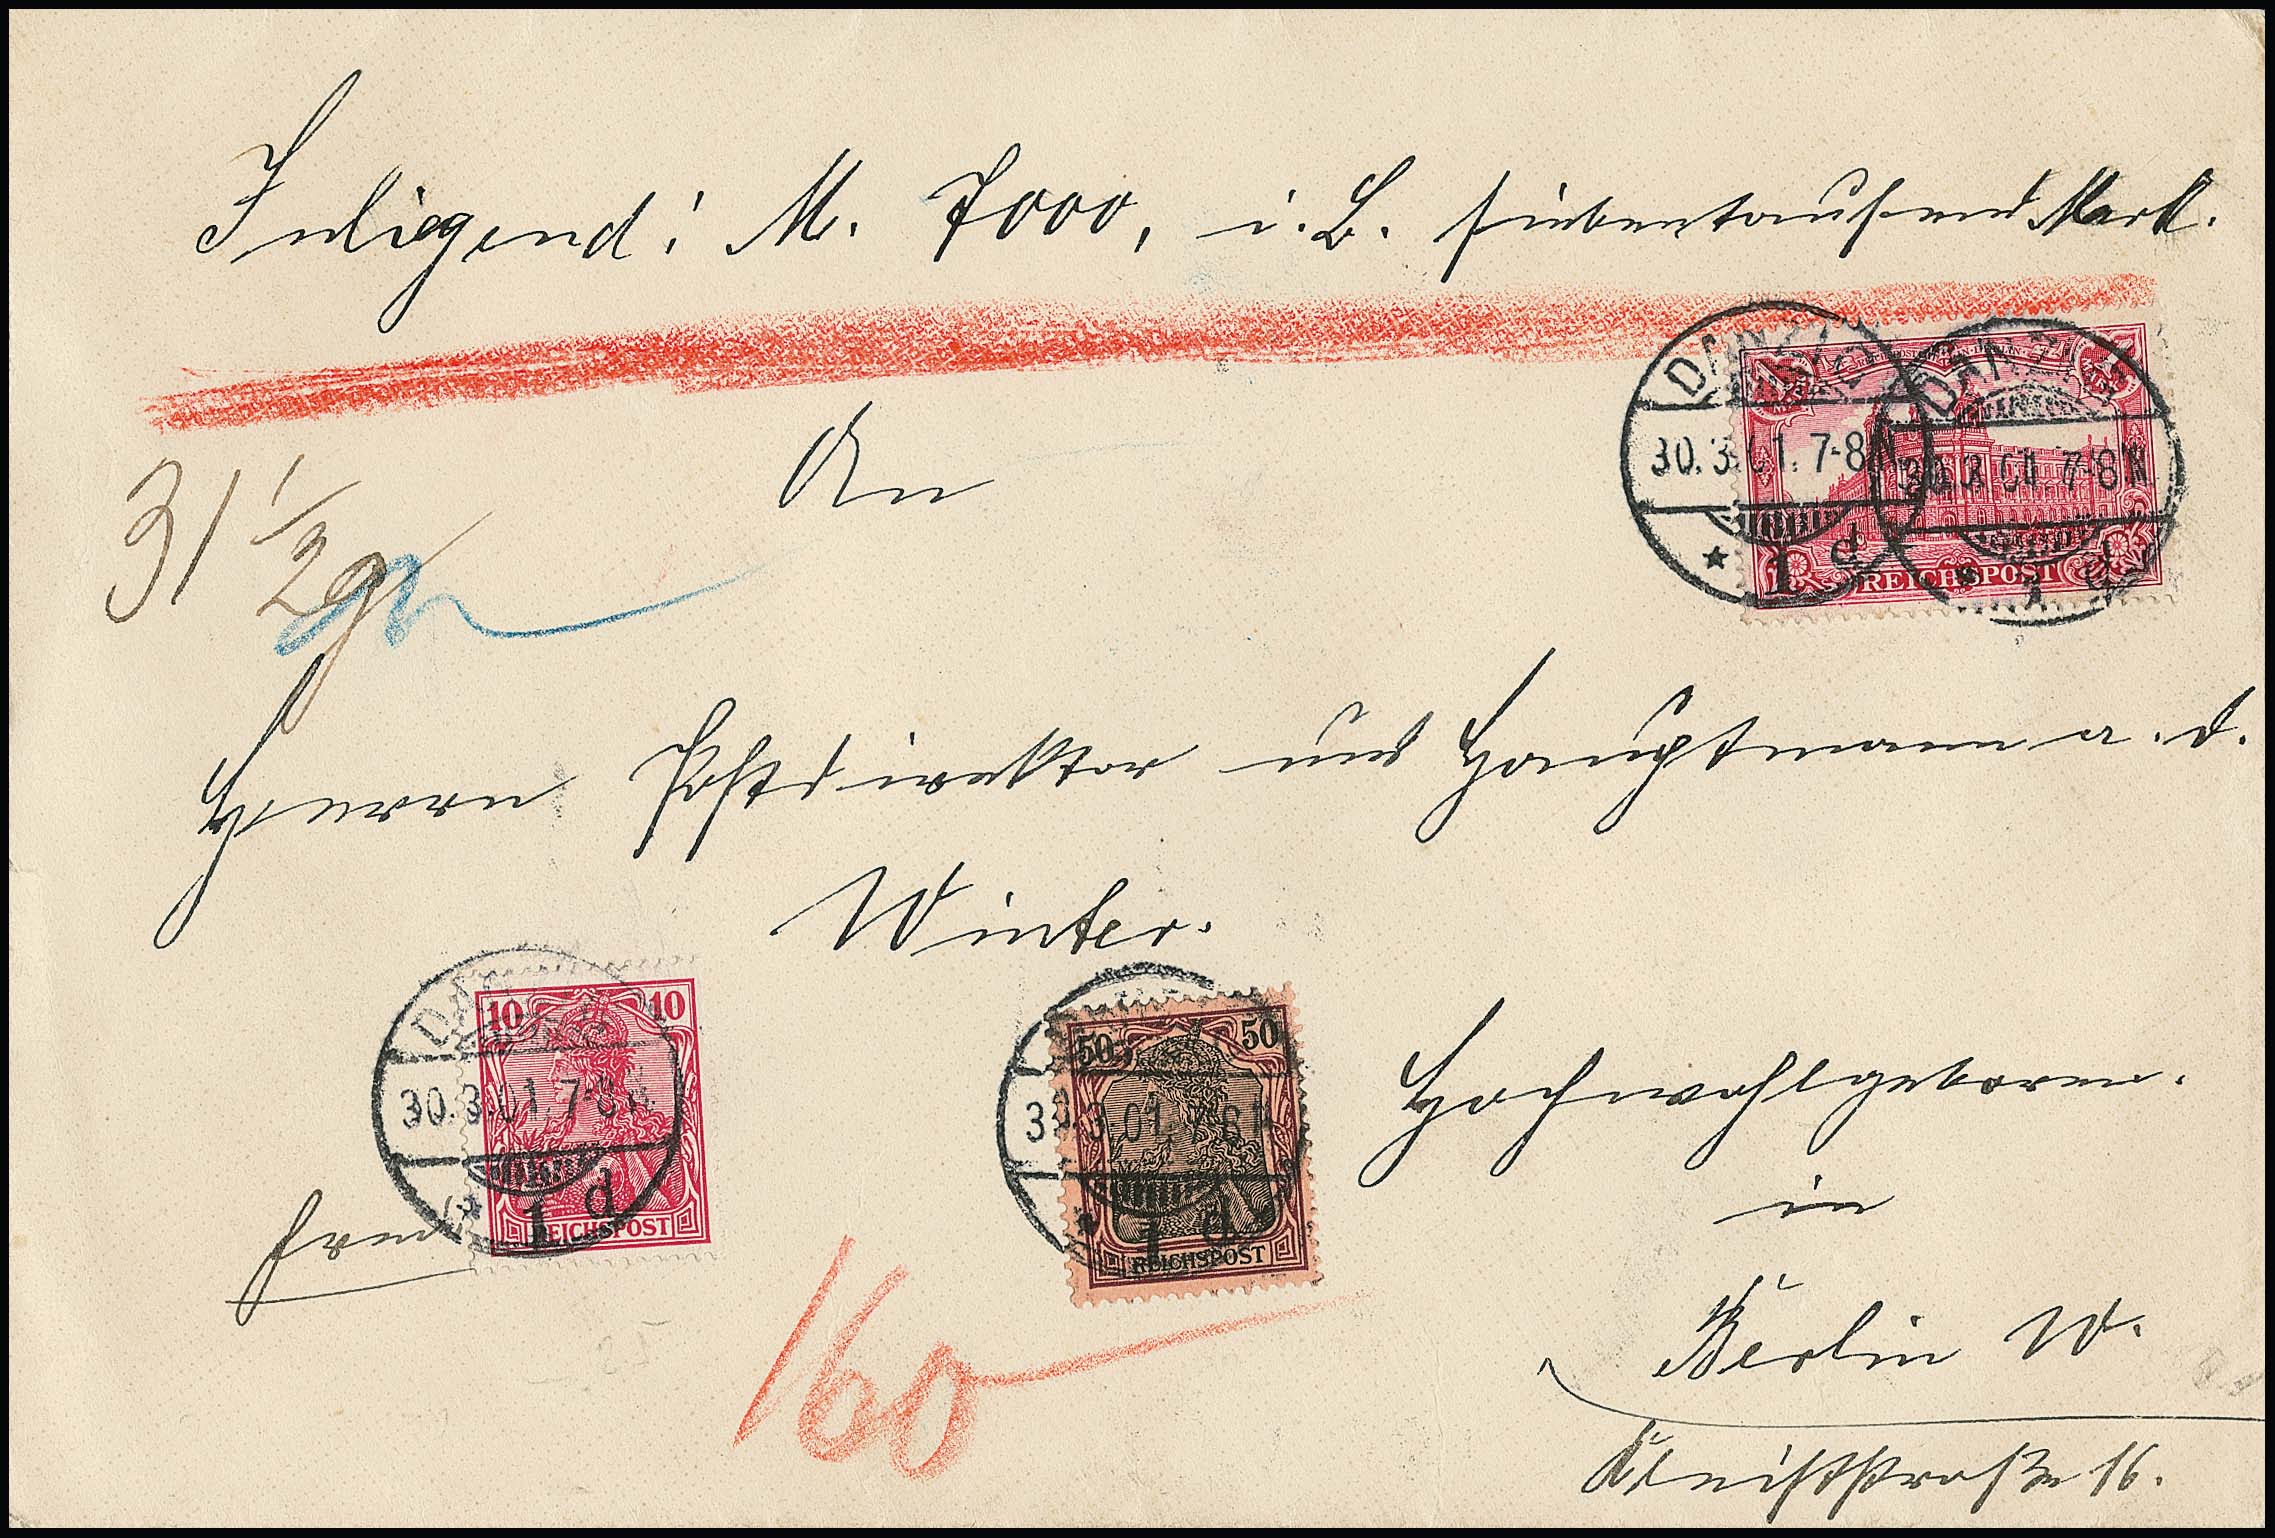 Inliegend: M. 7000, i. B. siebentausend Mark.
DANZIG
30.3.01.7-8N
* 1 d
DANZIG
30.3.01.7-8N
* 1 d
REICHSPOST
31 1/2 gr
An
Herrn Postdirektor und Hauptmann a. D.
Winter.
DANZIG
30.3.01.7-8N
* 1 d
10 10
REICHSPOST
50 50
30.3.01.7-8N
* 1 d
REICHSPOST
Hochwohlgeboren.
in
frei
160
Berlin W.
Kleiststraße 16.